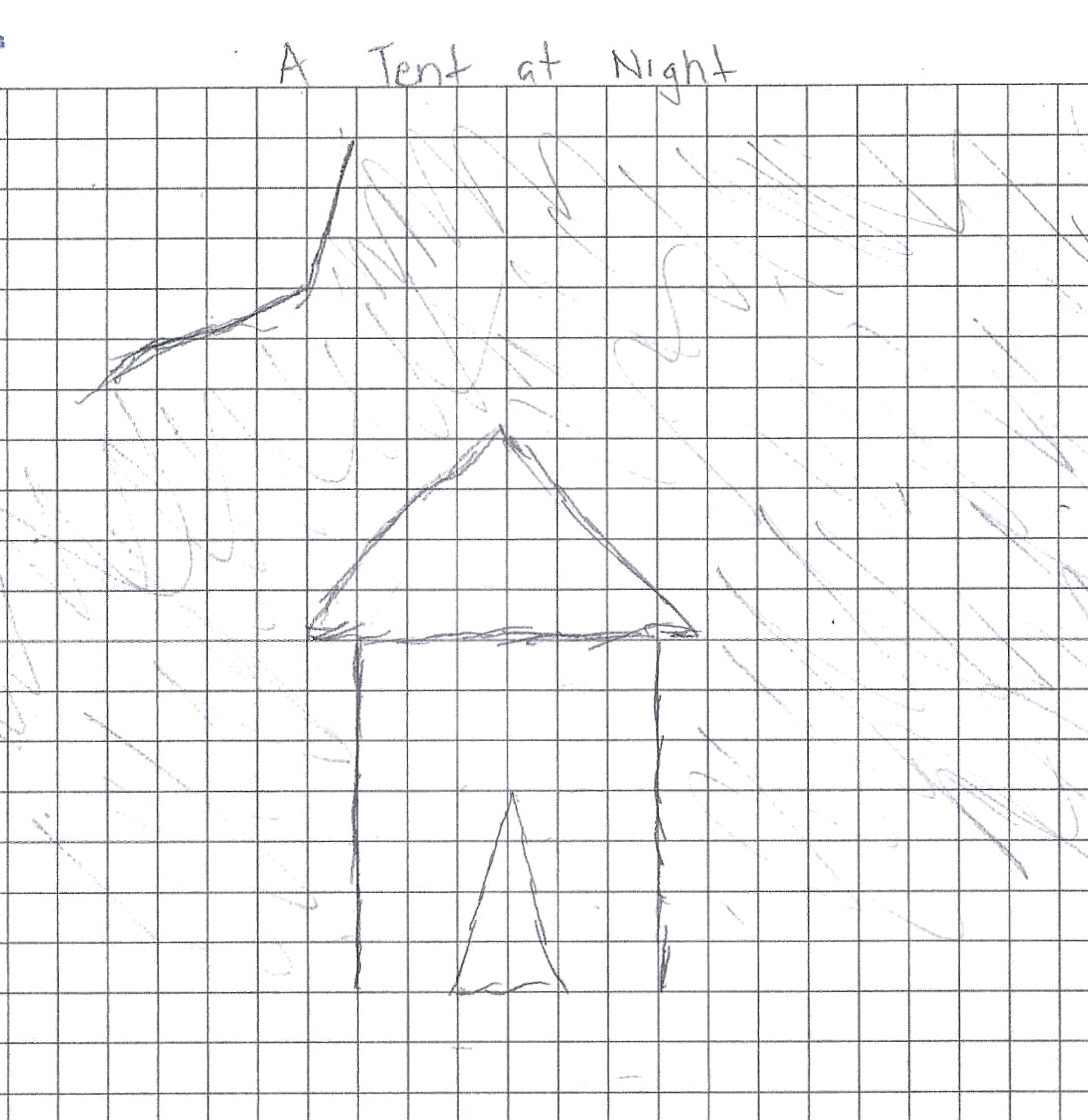 A Tent at Night